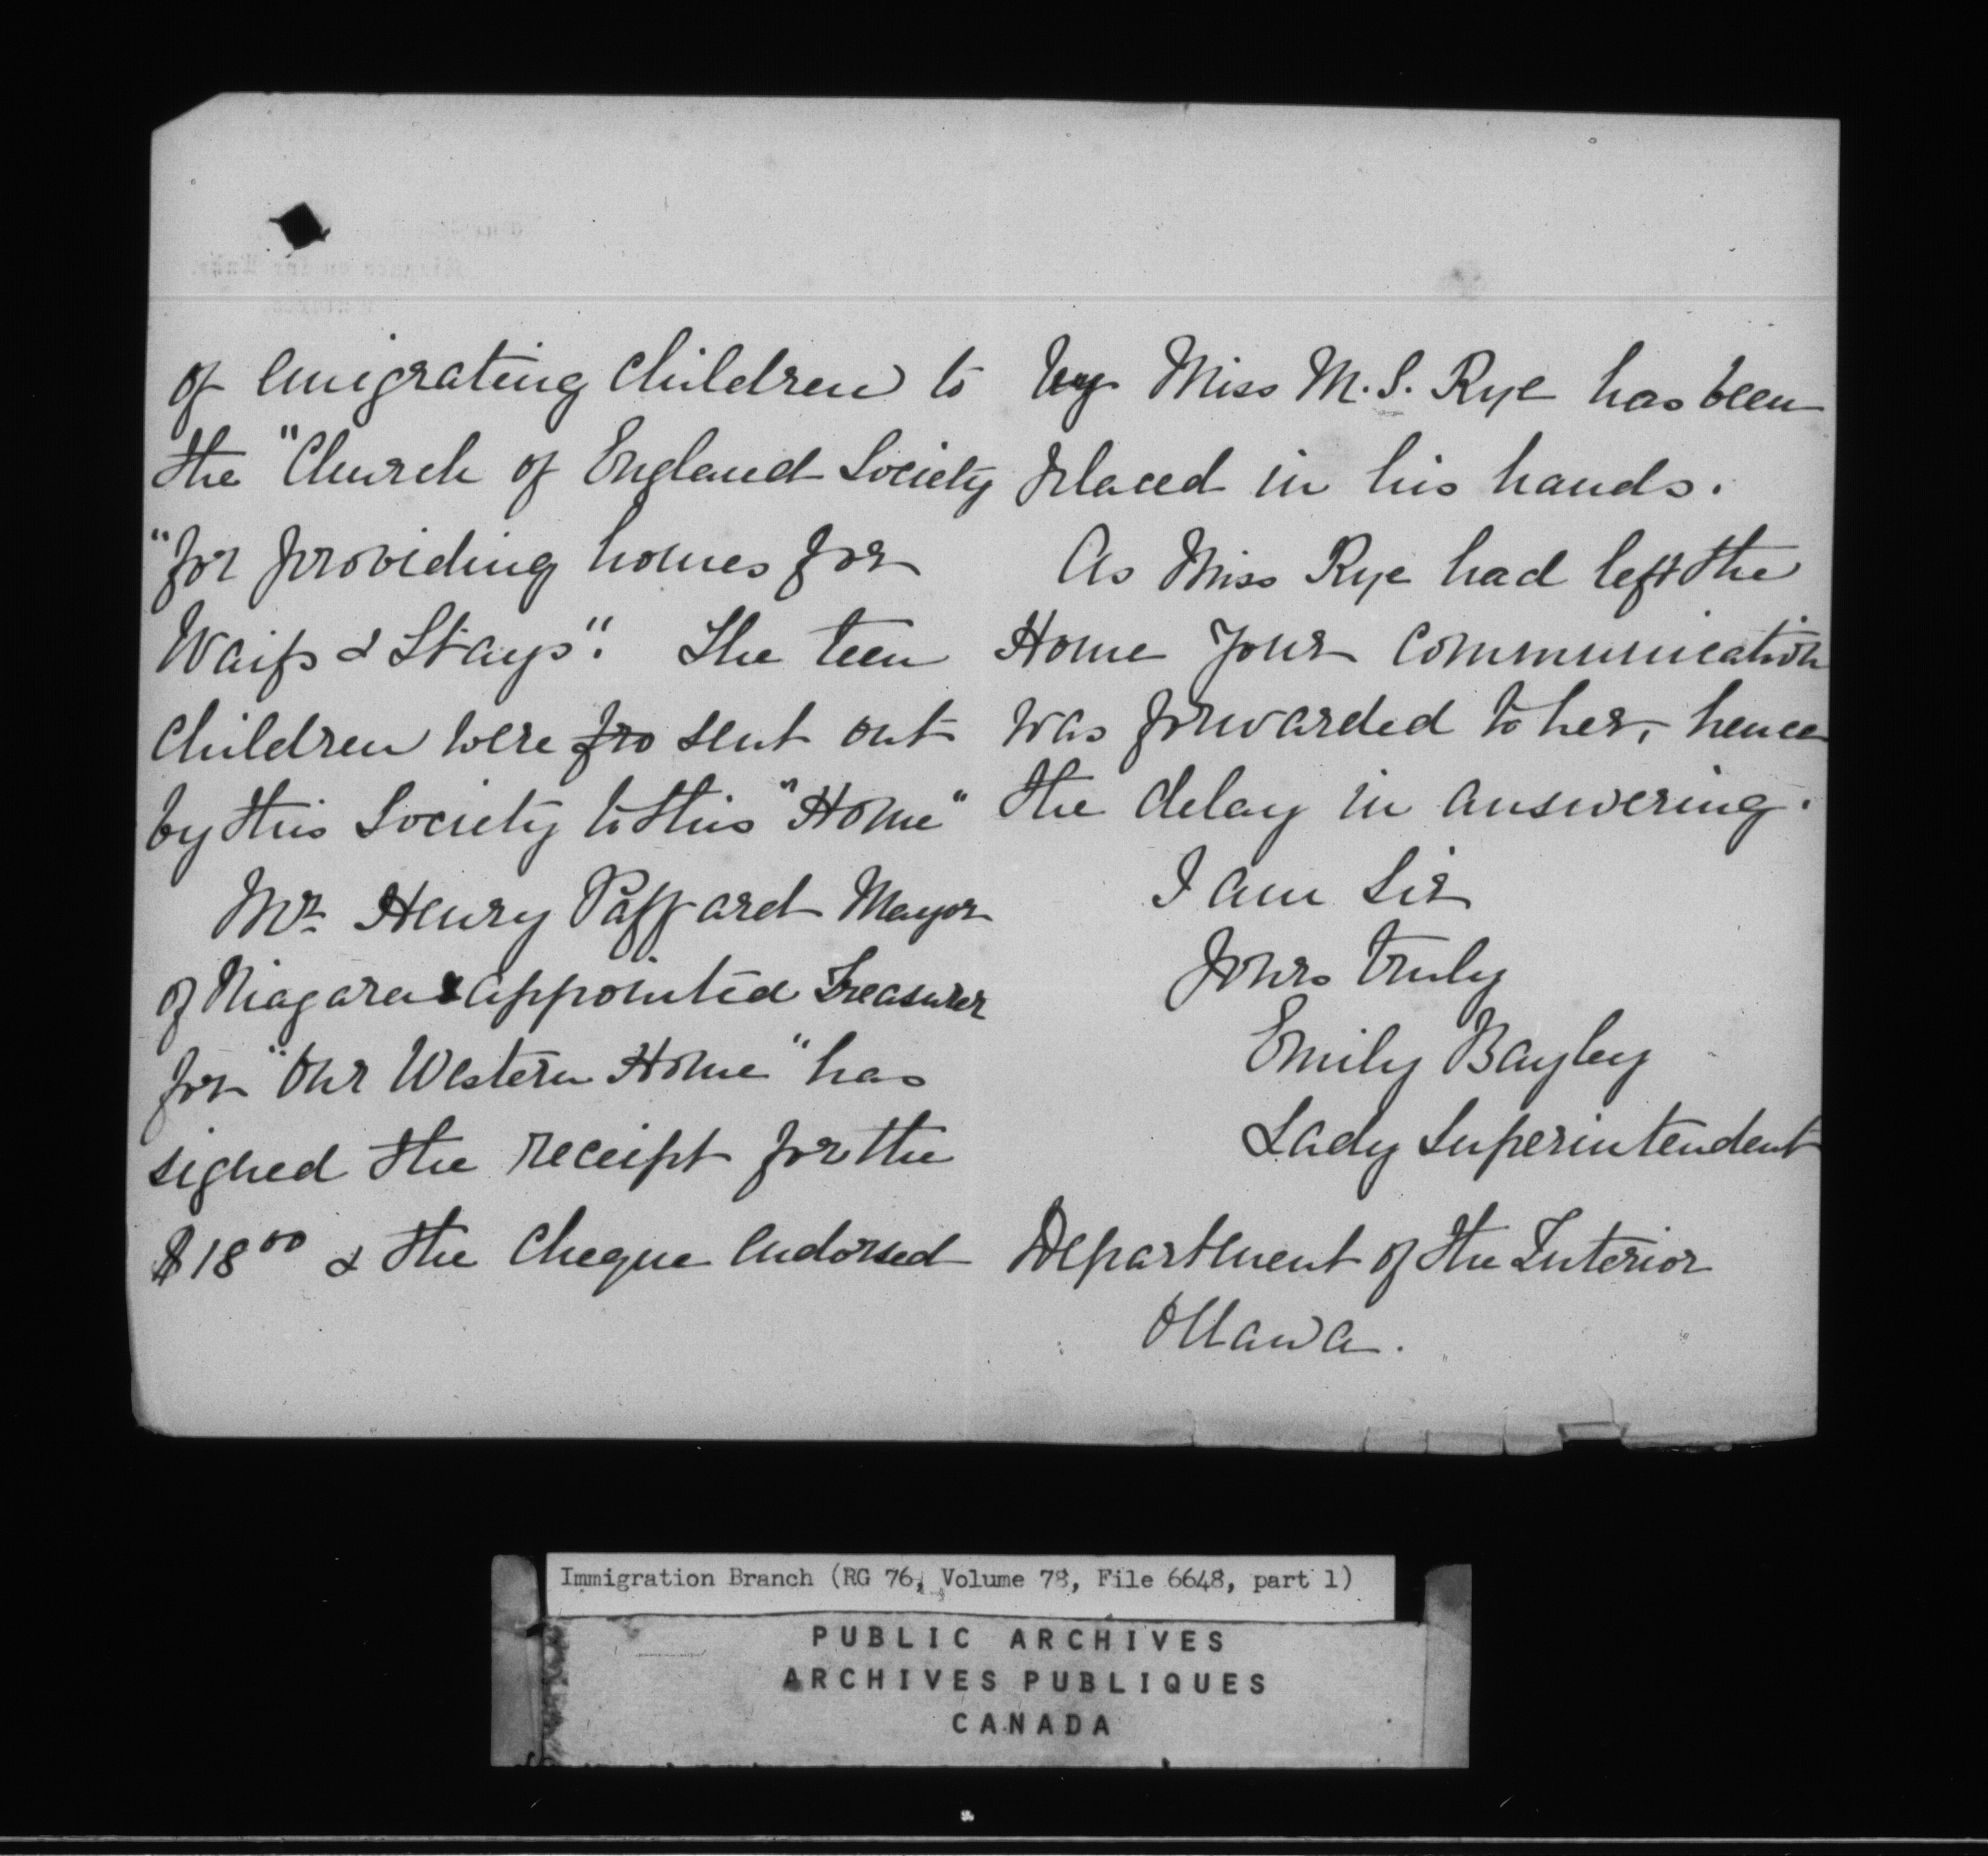 of emigrating children to
the "Church of England Society
"for providing homes for
Waifs & Strays". The teen
children were fro sent out
by this Society to this "Home"
Mr. Henry Paffard Mayor
of Niagara & appointed Treasurer
for "Our Western Home" has
signed the receipt for the
$18 00 & the cheque endorsed
by Miss M. S. Rye has been
placed in his hands.
As Miss Rye had left the
Home your communication
was forwarded to her, hence
the delay in answering.
I am Sir
Yours truly
Emily Bayley
Lady Superintendent
Department of the Interior
Ottawa.
Immigration Branch (RG 76, Volume 78, File 6648, part 1)
PUBLIC ARCHIVES
ARCHIVES PUBLIQUES
CANADA